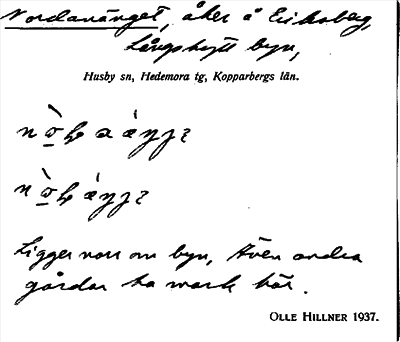 Nordanänget, åker å Eriksberg,
Långshytt byn,
Husby sn, Hedemora tg, Kopparbergs län.
Ligger norr om byn, även andra
gårdar ha mark här.
OLLE HILLNER 1937.